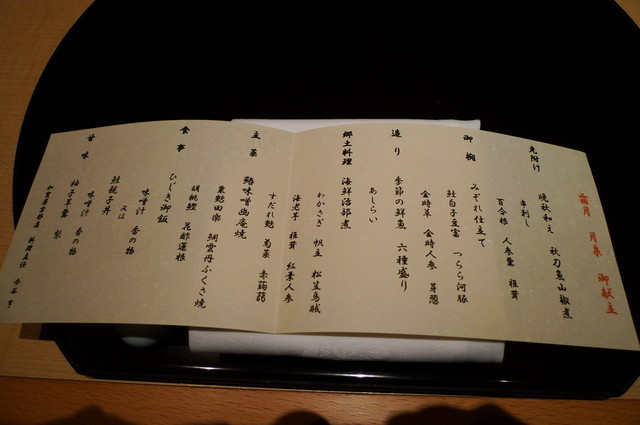 霜月 月泉 御献立
先附け
晩秋和え 秋刀魚山椒煮
串刺し
百合根 人参量 椎茸
御椀
みぞれ仕立て
鮭白子豆富 つらら河豚
金時草 金時人参 芽葱
造り
季節の鮮魚 六種盛り
あしらい
郷土料理 海鮮治部煮
わかさぎ 帆立 松笠烏賊
海老芋 椎茸 紅葉人参
すだれ麩 菊菜 赤蒟蒻
主菜
鰆味噌幽庵焼
粟麩田楽 鯛雲丹ふくさ焼
胡桃鰹 昆酢蓮根
食事
ひじき御飯
味噌汁 香の物
又は
鮭親子丼
味噌汁 香の物
甘味
柚子羊羹 梨
料理主任